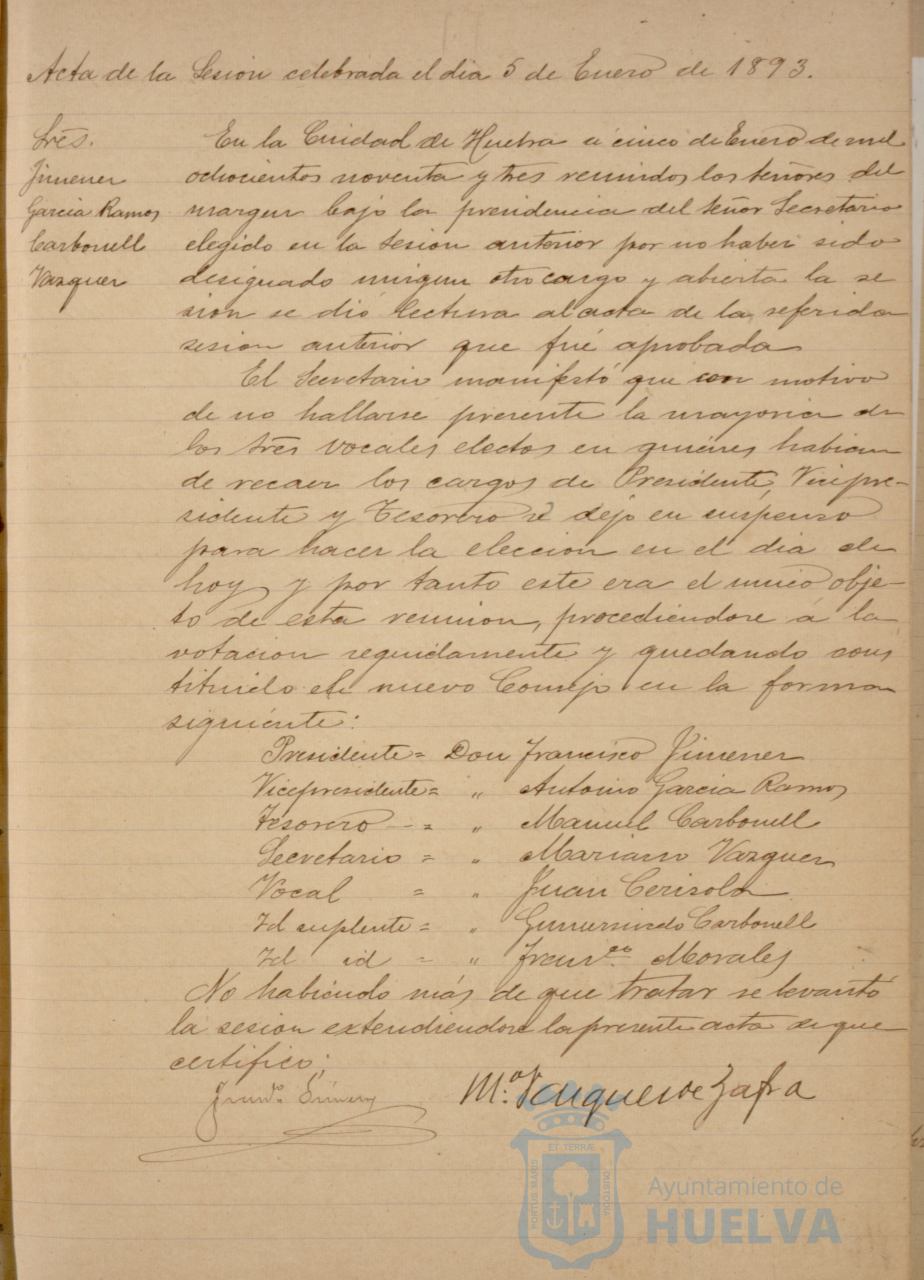 Acta de la Sesion celebrada el dia 5 de Enero de 1893.
Sres.
Jimenez
Garcia Ramos
Carbonell
Vazquez
En la Ciudad de Huelva á cinco de Enero de mil
ochocientos noventa y tres reunidos los señores del
margen bajo la presidencia del señor Secretario
elegido en la sesion anterior por no haber sido
designado ningun otro cargo y abierta la se
sion se dió lectura al acta de la referida
sesion anterior que fué aprobada
El Secretario manifestó que con motivo
de no hallarse presente la mayoria de
los tres vocales electos en quienes habian
de recaer los cargos de Presidente, Vicepre-
sidente y Tesorero se dejó en suspenso
para hacer la eleccion en el dia de
hoy y por tanto este era el unico obje-
to de esta reunion, procediendose á la
votacion seguidamente y quedando cons
tituido el nuevo Consejo en la forma
siguiente:
Presidente = Don Francisco Jimenez
Vicepresidente = " Antonio Garcia Ramos
Tesorero = " Manuel Carbonell
Secretario = " Mariano Vazquez
Vocal = " Juan Cerisola
Id suplente = " Gumersindo Carbonell
Id id = " Franco. Morales
No habiendo más de que tratar se levantó
la sesion extendiendose la presente acta de que
certifico;
Mo. Vazquez de Zafra
ET TERRÆ
PORTUS MARIS
CUSTODIA
Ayuntamiento de
HUELVA